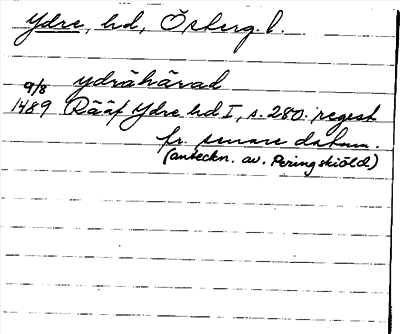 Ydre, hd, Österg. l.
ydrähärad
9/8
1489 Rääf Ydre hd I, s. 280. regest
fr. senare datum.
(anteckn. av. Peringskiöld)